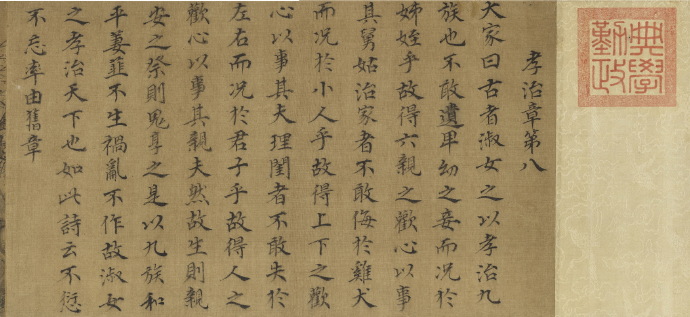 典學
勤政
孝治章第八
大家曰古者淑女之以孝治九
族也不敢遺卑幼之妾而況於
姊姪乎故得六親之歡心以事
其舅姑治家者不敢侮於雞犬
而況於小人乎故得上下之歡
心以事其夫理閨者不敢失於
左右而況於君子乎故得人之
歡心以事其親夫然故生則親
安之祭則鬼享之是以九族和
平萋菲不生禍亂不作故淑女
之孝治天下也如此詩云不愆
不忘率由舊章